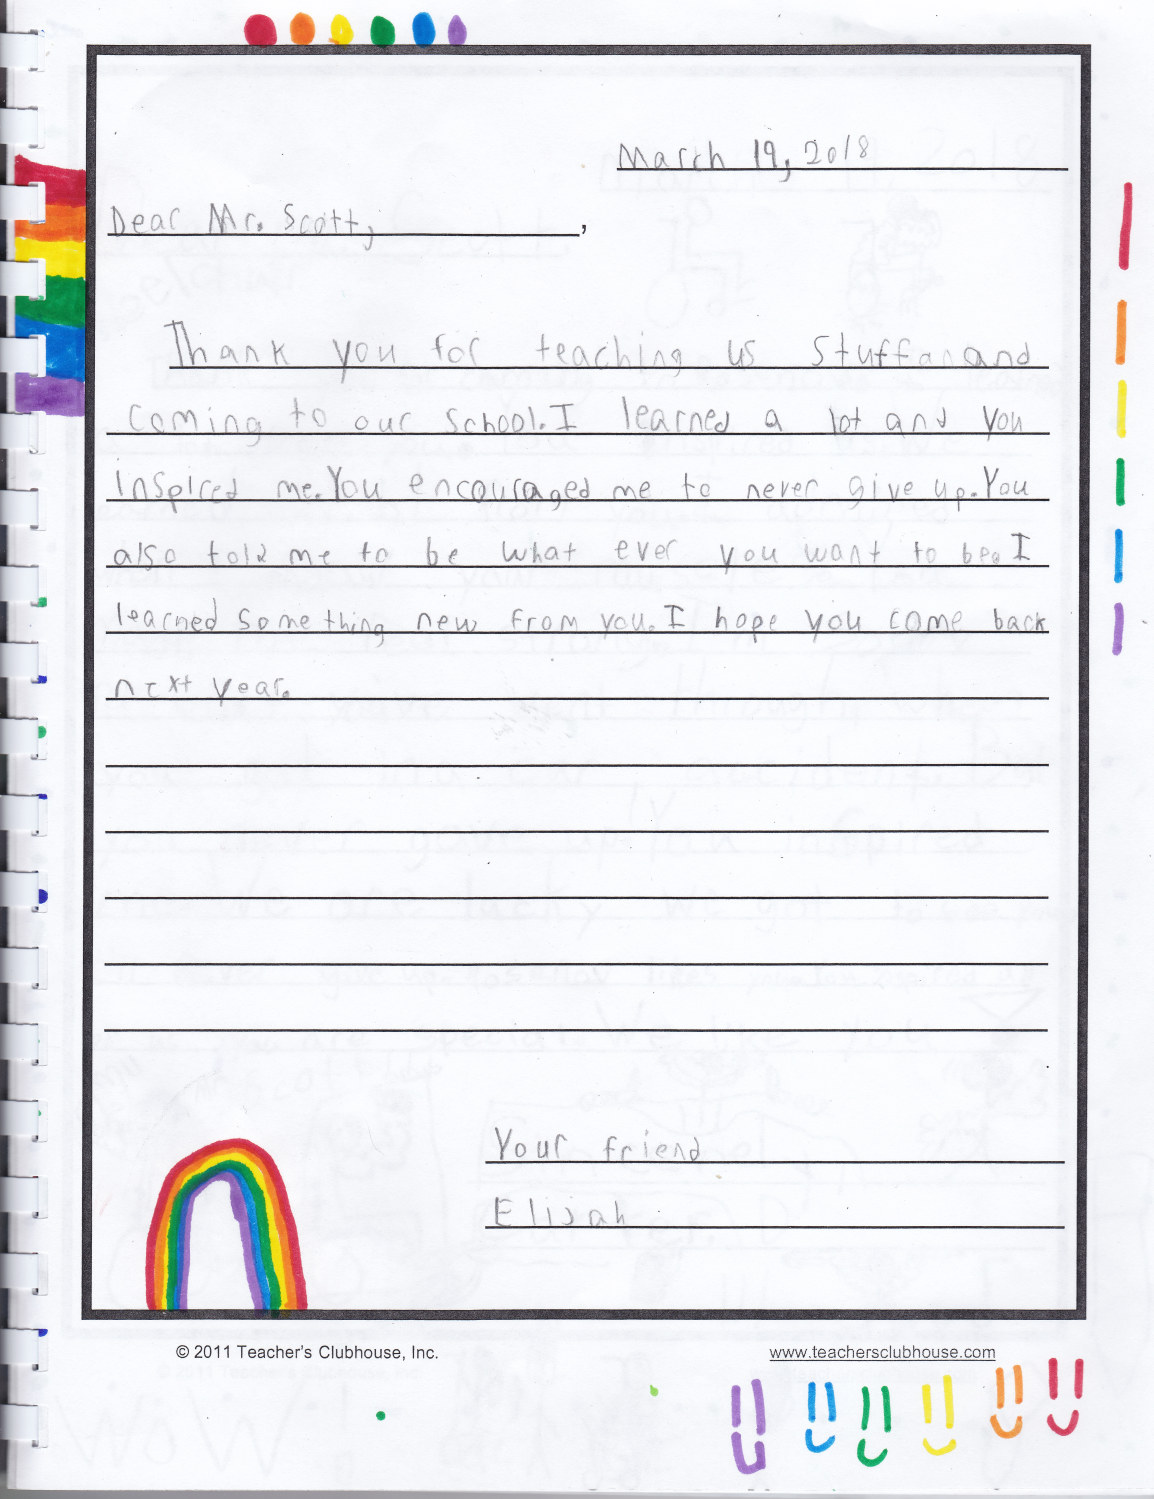 March 19, 2018
Dear Mr. Scott, ,
Thank you for teaching us stuff and
coming to our school. I learned a lot and you
inspired me. You encouraged me to never give up. You
also told me to be what ever you want to be. I
learned something new from you. I hope you come back
next year.
Your friend
Elijah
© 2011 Teacher's Clubhouse, Inc.
www.teachersclubhouse.com